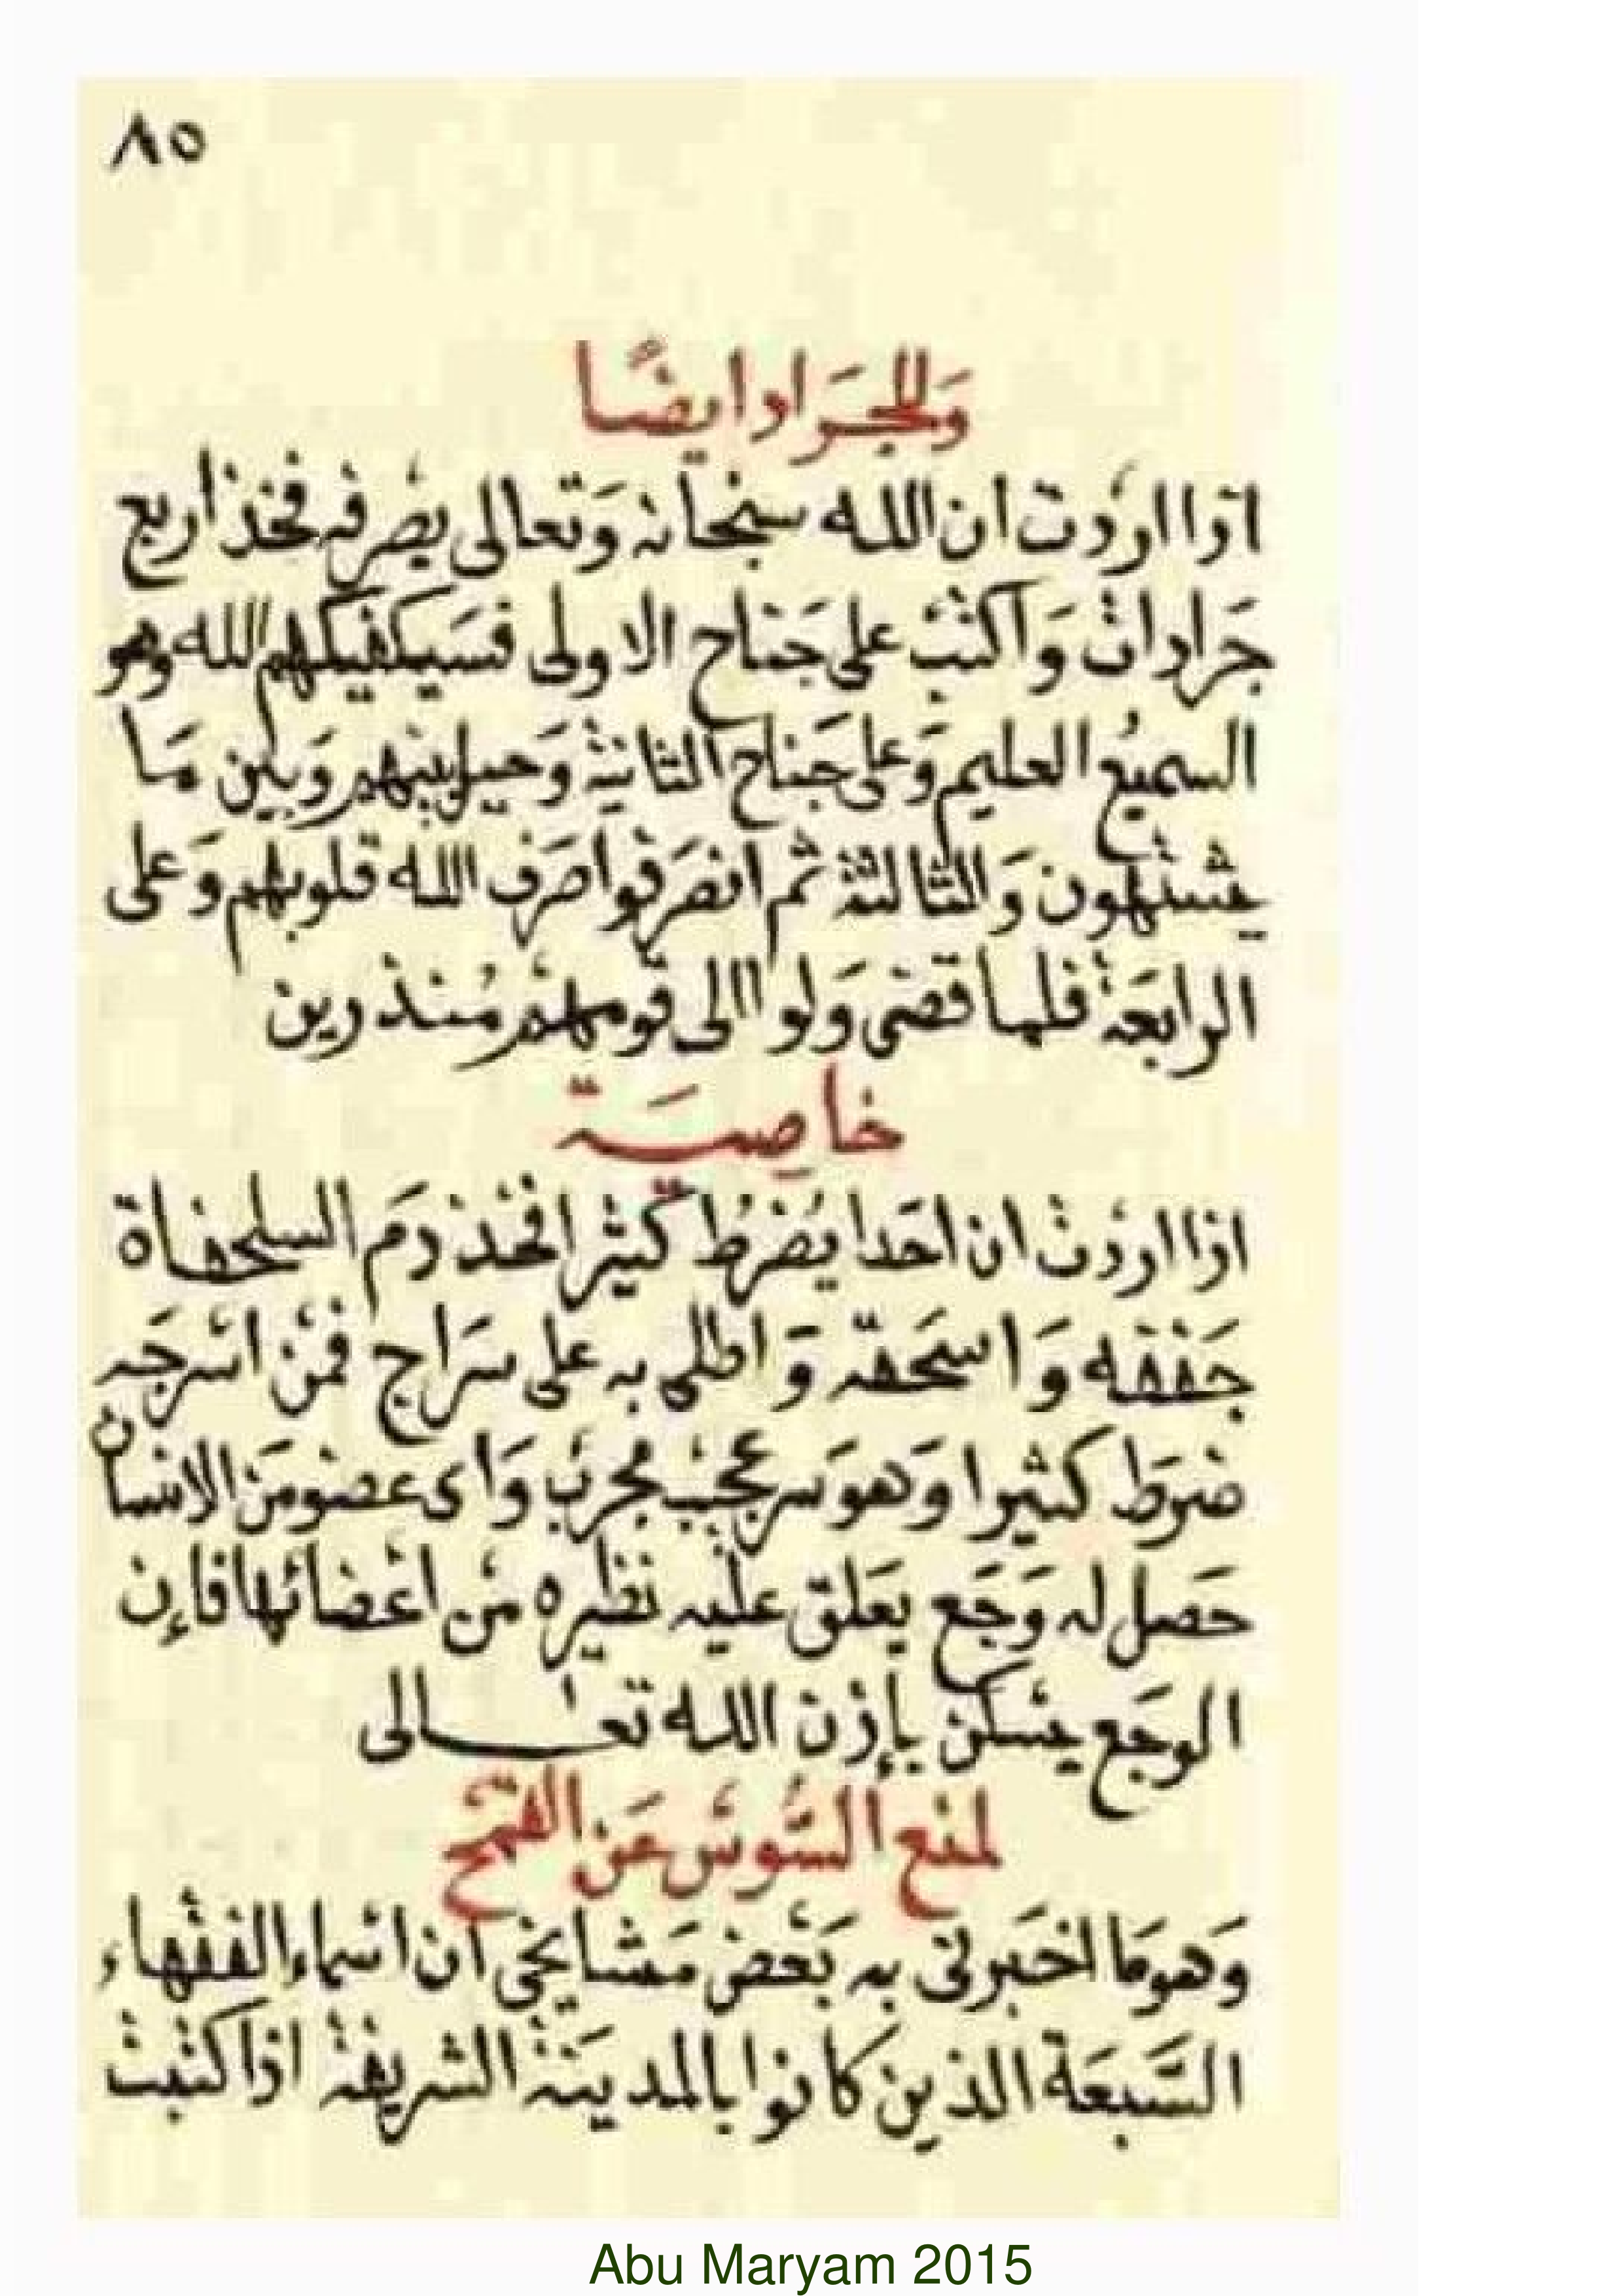 ٨٥
وَللجَراد ايضًا
اذا اردت ان الله سبحانه وَتعالى يصرفه فخذ اربع
جَرادات وَاكتب على جَناح الاولى فسَيكفيكهم الله وهو
السميع العليم وَعلى جَناح الثانية وَحيل بينهم وَبين مَا
يشتهون وَالثالثة ثم انصَرفوا صَرف الله قلوبهم وَعلى
الرابعَة فلما قضى وَلوا الى قومهم مُنذرين
خاصِيَة
اذا اردْتْ ان احَدا يُضْرُط كثيْرا فخُذ دَم السلحفاة
جَففه وَاسحَقه وَاطلى به على سَراج فمَنْ اسْرجَه
ضرَط كثيرا وَهوَ سر عجيْب مجرّبْ وَاى عضو مَن الانسان
حَصل له وَجَع يعَلق عليْه نظيره مْن اعْضائها فإن
الوجَع يسْكن بإذن الله تعالى
لمنْع السُّوسْ عَن القمْح
وَهوَ مَا اخبَرنى به بَعْض مَشايخي ان اسْماء الفقْهاء
السَّبعَة الذين كانوا بالمدينَة الشريفْة اذا كتبتْ
Abu Maryam 2015